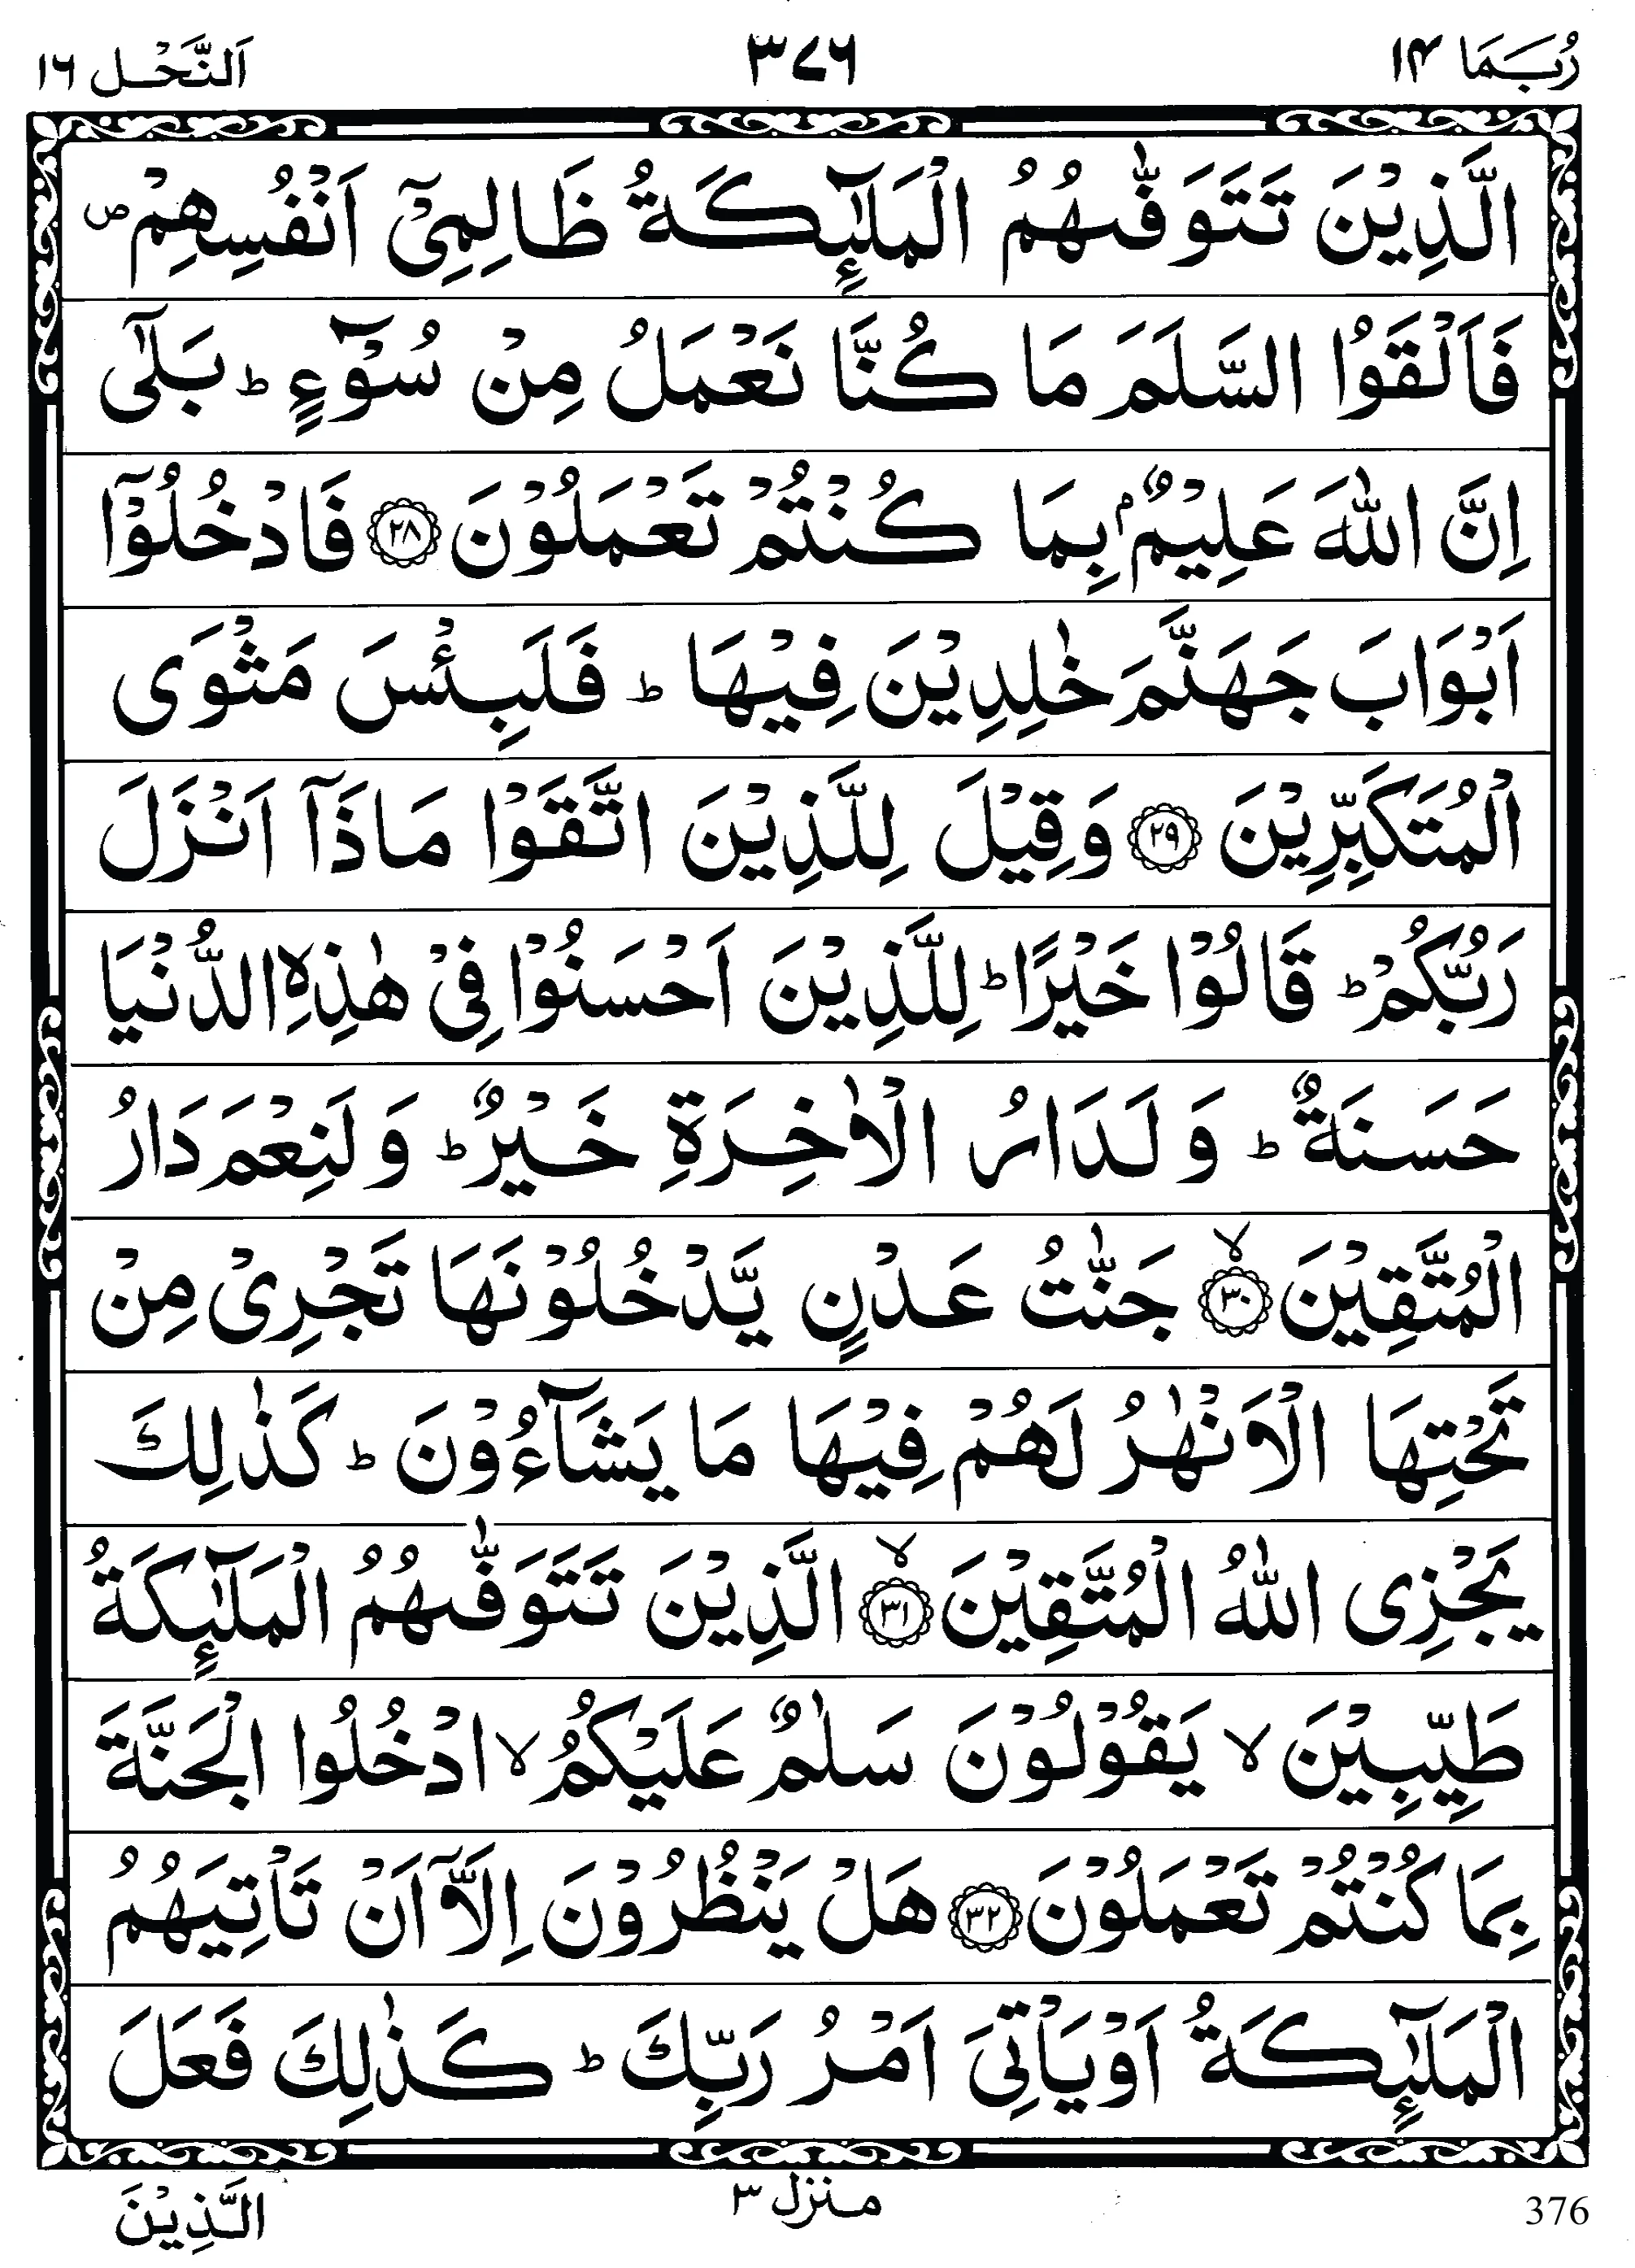 رُبَمَا ١٤ ٣٧٦ اَلنَّحْل ١٦
الَّذِيْنَ تَتَوَفّٰىهُمُ الْمَلٰٓئِكَةُ ظَالِمِيْٓ اَنْفُسِهِمْ ص
فَاَلْقَوُا السَّلَمَ مَا كُنَّا نَعْمَلُ مِنْ سُوْٓءٍ ط بَلٰٓى
اِنَّ اللّٰهَ عَلِيْمٌۢ بِمَا كُنْتُمْ تَعْمَلُوْنَ ٢٨ فَادْخُلُوْٓا
اَبْوَابَ جَهَنَّمَ خٰلِدِيْنَ فِيْهَا ط فَلَبِئْسَ مَثْوَى
الْمُتَكَبِّرِيْنَ ٢٩ وَقِيْلَ لِلَّذِيْنَ اتَّقَوْا مَاذَآ اَنْزَلَ
رَبُّكُمْ ط قَالُوْا خَيْرًا ط لِلَّذِيْنَ اَحْسَنُوْا فِيْ هٰذِهِ الدُّنْيَا
حَسَنَةٌ ط وَلَدَارُ الْاٰخِرَةِ خَيْرٌ ط وَلَنِعْمَ دَارُ
الْمُتَّقِيْنَ ٣٠ لا جَنّٰتُ عَدْنٍ يَّدْخُلُوْنَهَا تَجْرِيْ مِنْ
تَحْتِهَا الْاَنْهٰرُ لَهُمْ فِيْهَا مَا يَشَآءُوْنَ ط كَذٰلِكَ
يَجْزِى اللّٰهُ الْمُتَّقِيْنَ ٣١ لا الَّذِيْنَ تَتَوَفّٰىهُمُ الْمَلٰٓئِكَةُ
طَيِّبِيْنَ لا يَقُوْلُوْنَ سَلٰمٌ عَلَيْكُمُ لا ادْخُلُوا الْجَنَّةَ
بِمَا كُنْتُمْ تَعْمَلُوْنَ ٣٢ هَلْ يَنْظُرُوْنَ اِلَّآ اَنْ تَاْتِيَهُمُ
الْمَلٰٓئِكَةُ اَوْ يَاْتِيَ اَمْرُ رَبِّكَ ط كَذٰلِكَ فَعَلَ
376 منزل ٣ الَّذِيْنَ